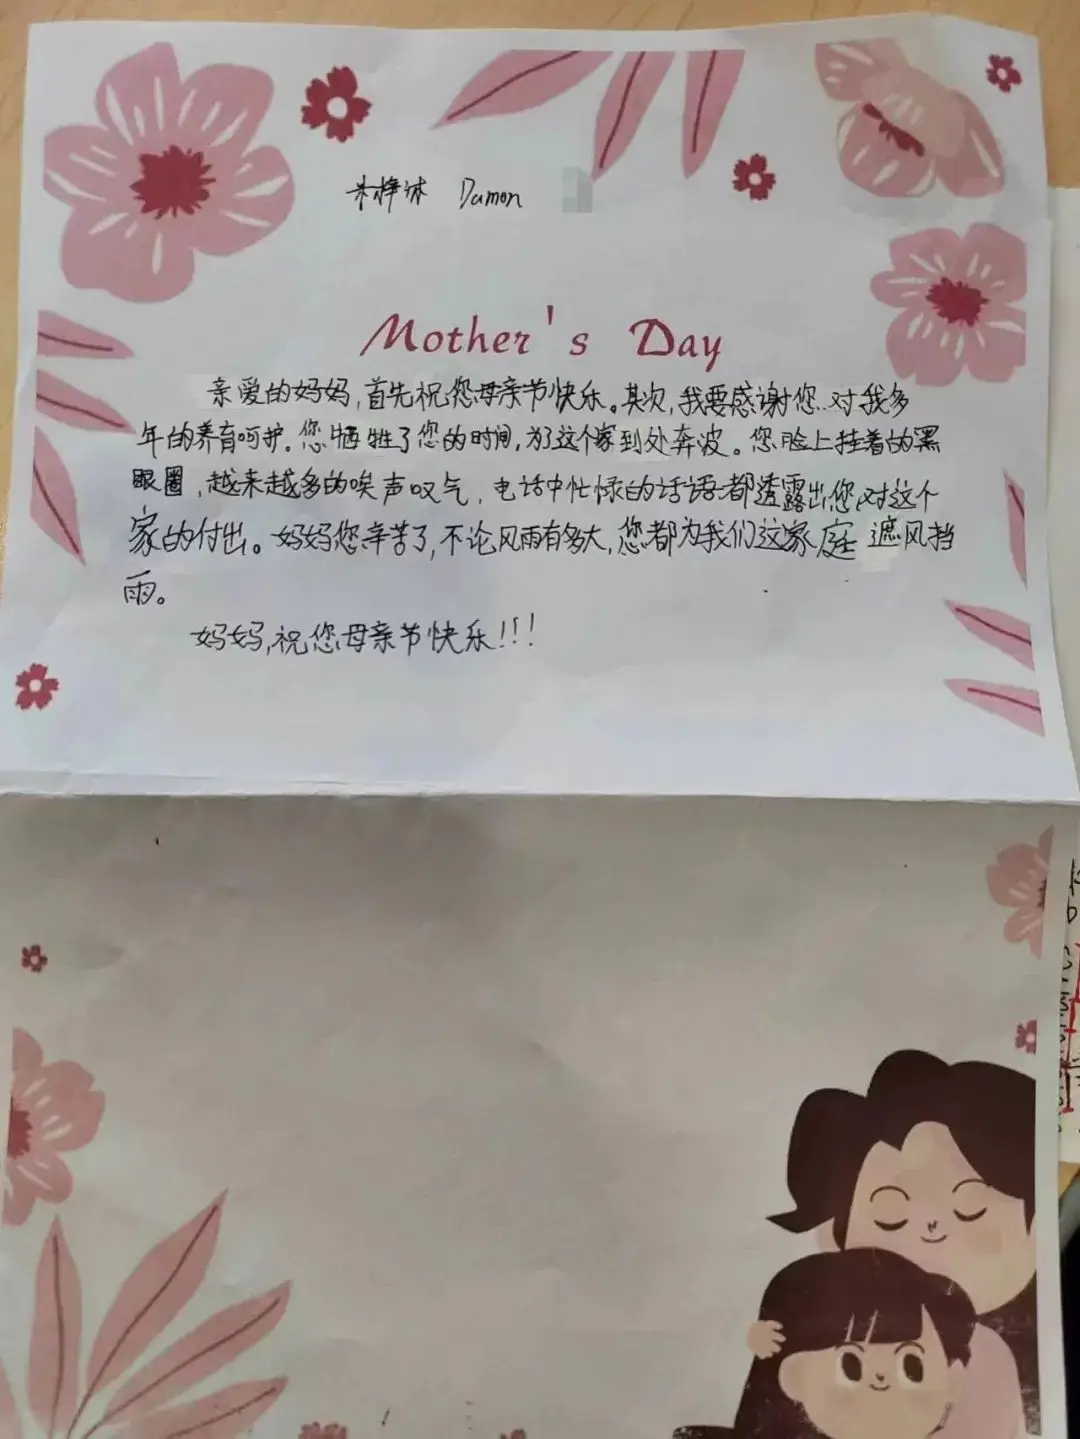 朱梓沐 Damon
Mother's Day
亲爱的妈妈,首先祝您母亲节快乐。其次,我要感谢您..对我多
年的养育呵护。您牺牲了您的时间,为了这个家到处奔波。您脸上挂着的黑
眼圈,越来越多的唉声叹气,电话中忙碌的话语都透露出您对这个
家的付出。妈妈您辛苦了,不论风雨有多大,您都为我们这家庭遮风挡
雨。
妈妈,祝您母亲节快乐!!!